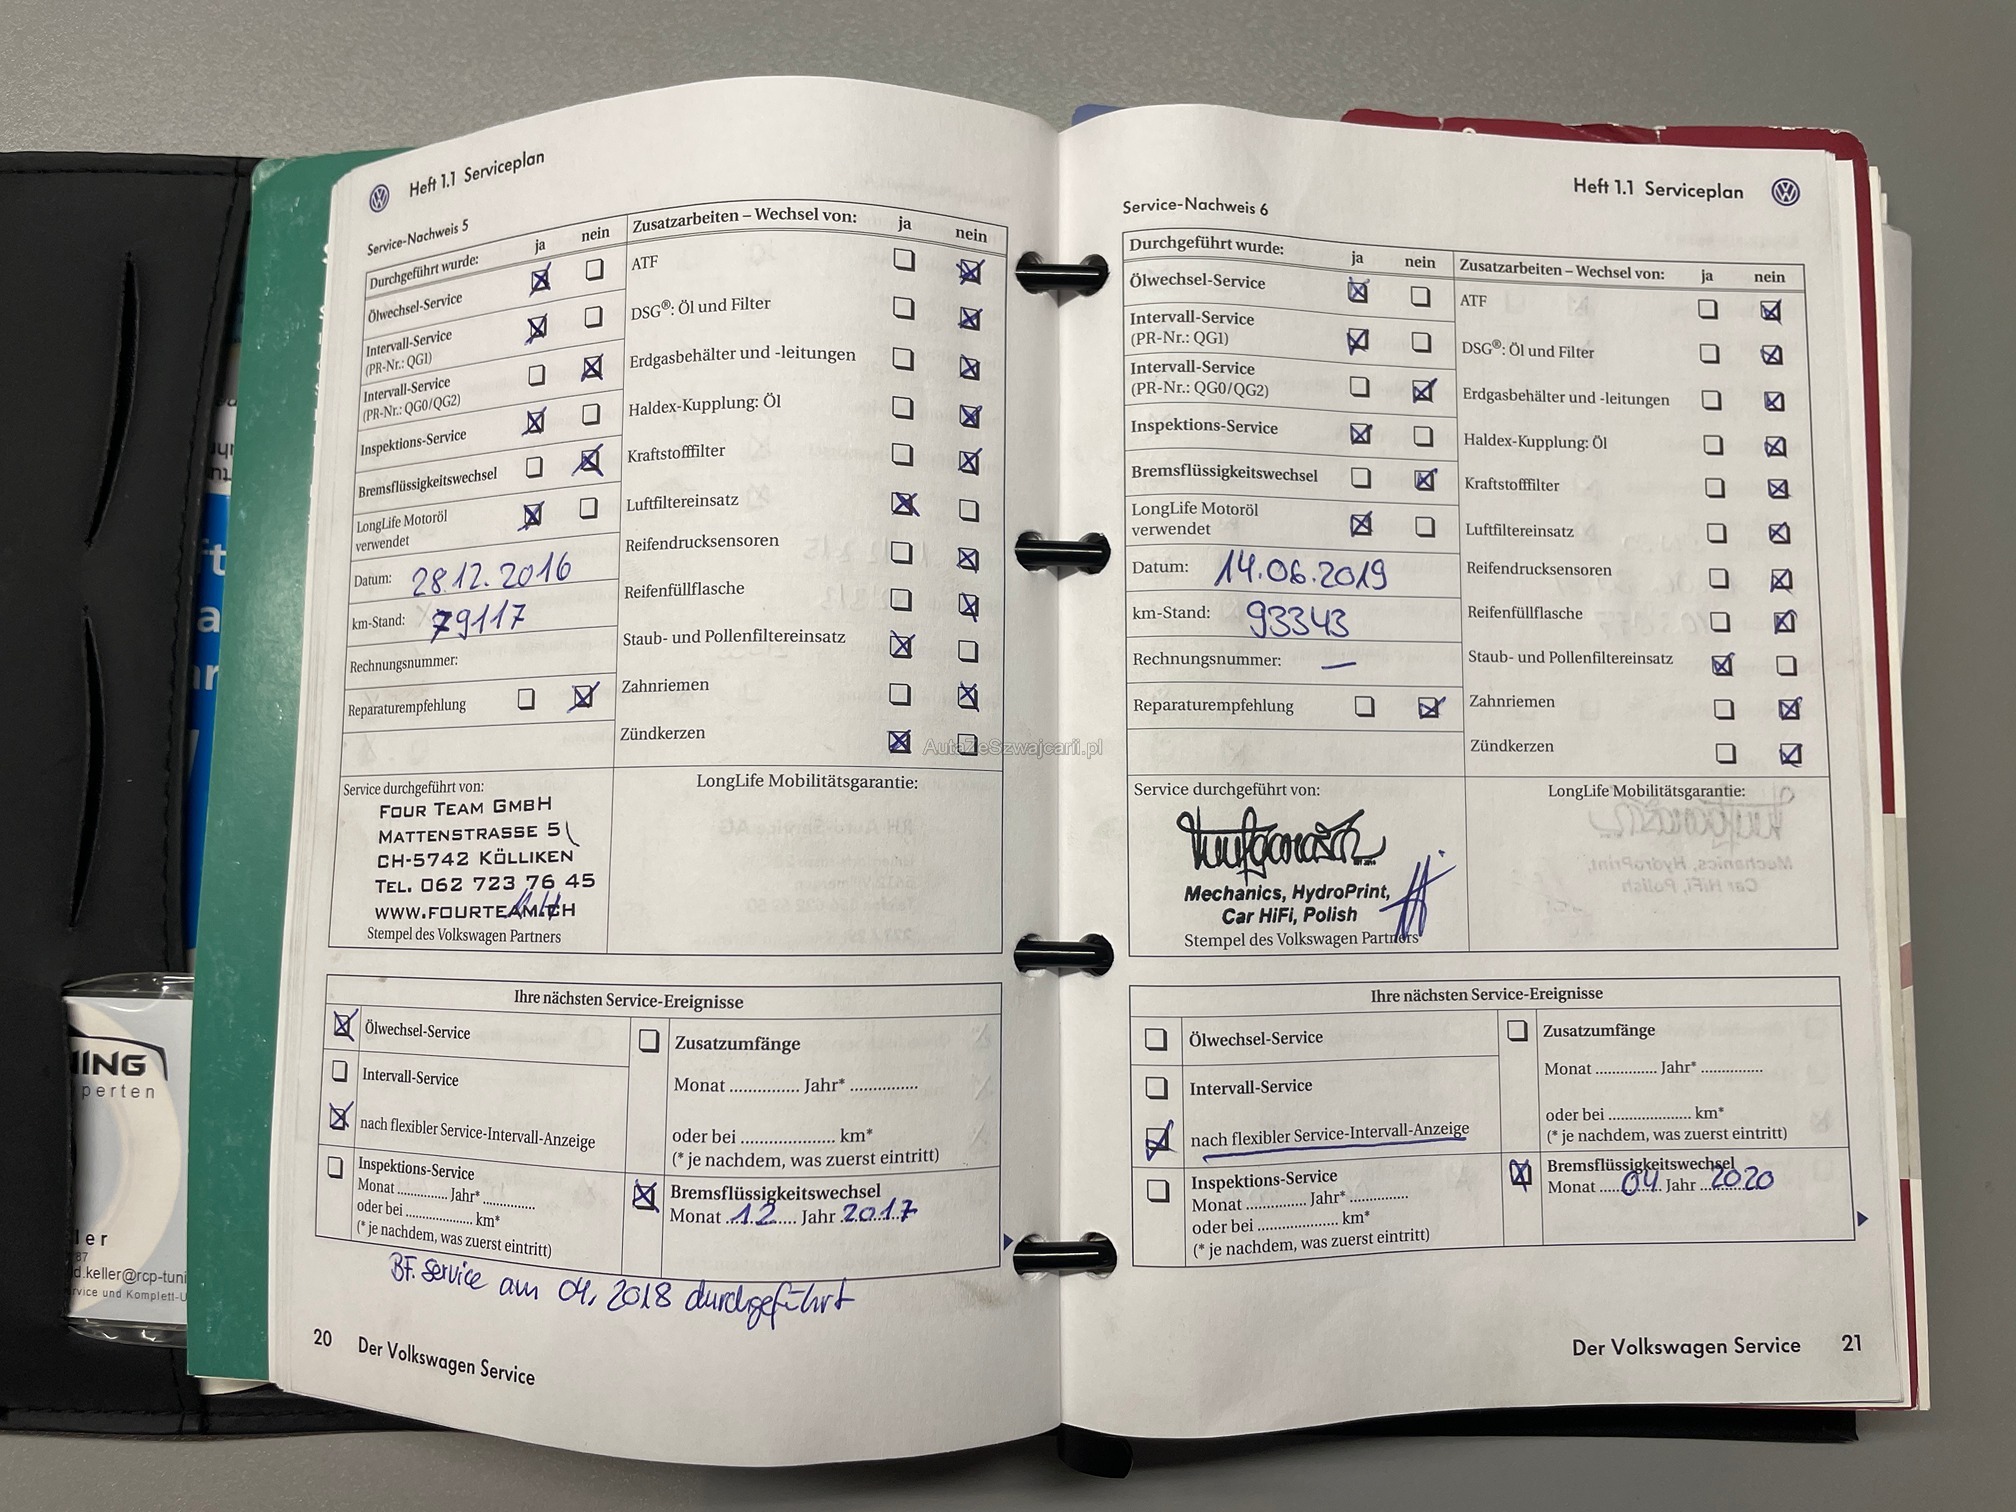 Heft 1.1 Serviceplan
Service-Nachweis 5
Durchgeführt wurde: ja nein
Ölwechsel-Service
Intervall-Service
(PR-Nr.: QG1)
Intervall-Service
(PR-Nr.: QG0/QG2)
Inspektions-Service
Bremsflüssigkeitswechsel
LongLife Motoröl
verwendet
Datum: 28.12.2016
km-Stand: 79117
Rechnungsnummer:
Reparaturempfehlung
Zusatzarbeiten – Wechsel von: ja nein
ATF
DSG®: Öl und Filter
Erdgasbehälter und -leitungen
Haldex-Kupplung: Öl
Kraftstofffilter
Luftfiltereinsatz
Reifendrucksensoren
Reifenfüllflasche
Staub- und Pollenfiltereinsatz
Zahnriemen
Zündkerzen
Service durchgeführt von:
FOUR TEAM GMBH
MATTENSTRASSE 5
CH-5742 KÖLLIKEN
TEL. 062 723 76 45
WWW.FOURTEAM.CH
Stempel des Volkswagen Partners
LongLife Mobilitätsgarantie:
Ihre nächsten Service-Ereignisse
Ölwechsel-Service
Intervall-Service
nach flexibler Service-Intervall-Anzeige
Inspektions-Service
Monat .............. Jahr* ..............
oder bei .................... km*
(* je nachdem, was zuerst eintritt)
Zusatzumfänge
Monat .............. Jahr* ..............
oder bei .................... km*
(* je nachdem, was zuerst eintritt)
Bremsflüssigkeitswechsel
Monat 12 Jahr 2017
BF. Service am 04. 2018 durchgeführt
20 Der Volkswagen Service
Heft 1.1 Serviceplan
Service-Nachweis 6
Durchgeführt wurde: ja nein
Ölwechsel-Service
Intervall-Service
(PR-Nr.: QG1)
Intervall-Service
(PR-Nr.: QG0/QG2)
Inspektions-Service
Bremsflüssigkeitswechsel
LongLife Motoröl
verwendet
Datum: 14.06.2019
km-Stand: 93343
Rechnungsnummer: —
Reparaturempfehlung
Zusatzarbeiten – Wechsel von: ja nein
ATF
DSG®: Öl und Filter
Erdgasbehälter und -leitungen
Haldex-Kupplung: Öl
Kraftstofffilter
Luftfiltereinsatz
Reifendrucksensoren
Reifenfüllflasche
Staub- und Pollenfiltereinsatz
Zahnriemen
Zündkerzen
Service durchgeführt von:
Mechanics, HydroPrint,
Car HiFi, Polish
Stempel des Volkswagen Partners
LongLife Mobilitätsgarantie:
Ihre nächsten Service-Ereignisse
Ölwechsel-Service
Intervall-Service
nach flexibler Service-Intervall-Anzeige
Inspektions-Service
Monat .............. Jahr* ..............
oder bei .................... km*
(* je nachdem, was zuerst eintritt)
Zusatzumfänge
Monat .............. Jahr* ..............
oder bei .................... km*
(* je nachdem, was zuerst eintritt)
Bremsflüssigkeitswechsel
Monat 04 Jahr 2020
Der Volkswagen Service 21
AutaZeSzwajcarii.pl
NING
perten
ler
87
d.keller@rcp-tuni
rvice und Komplett-U